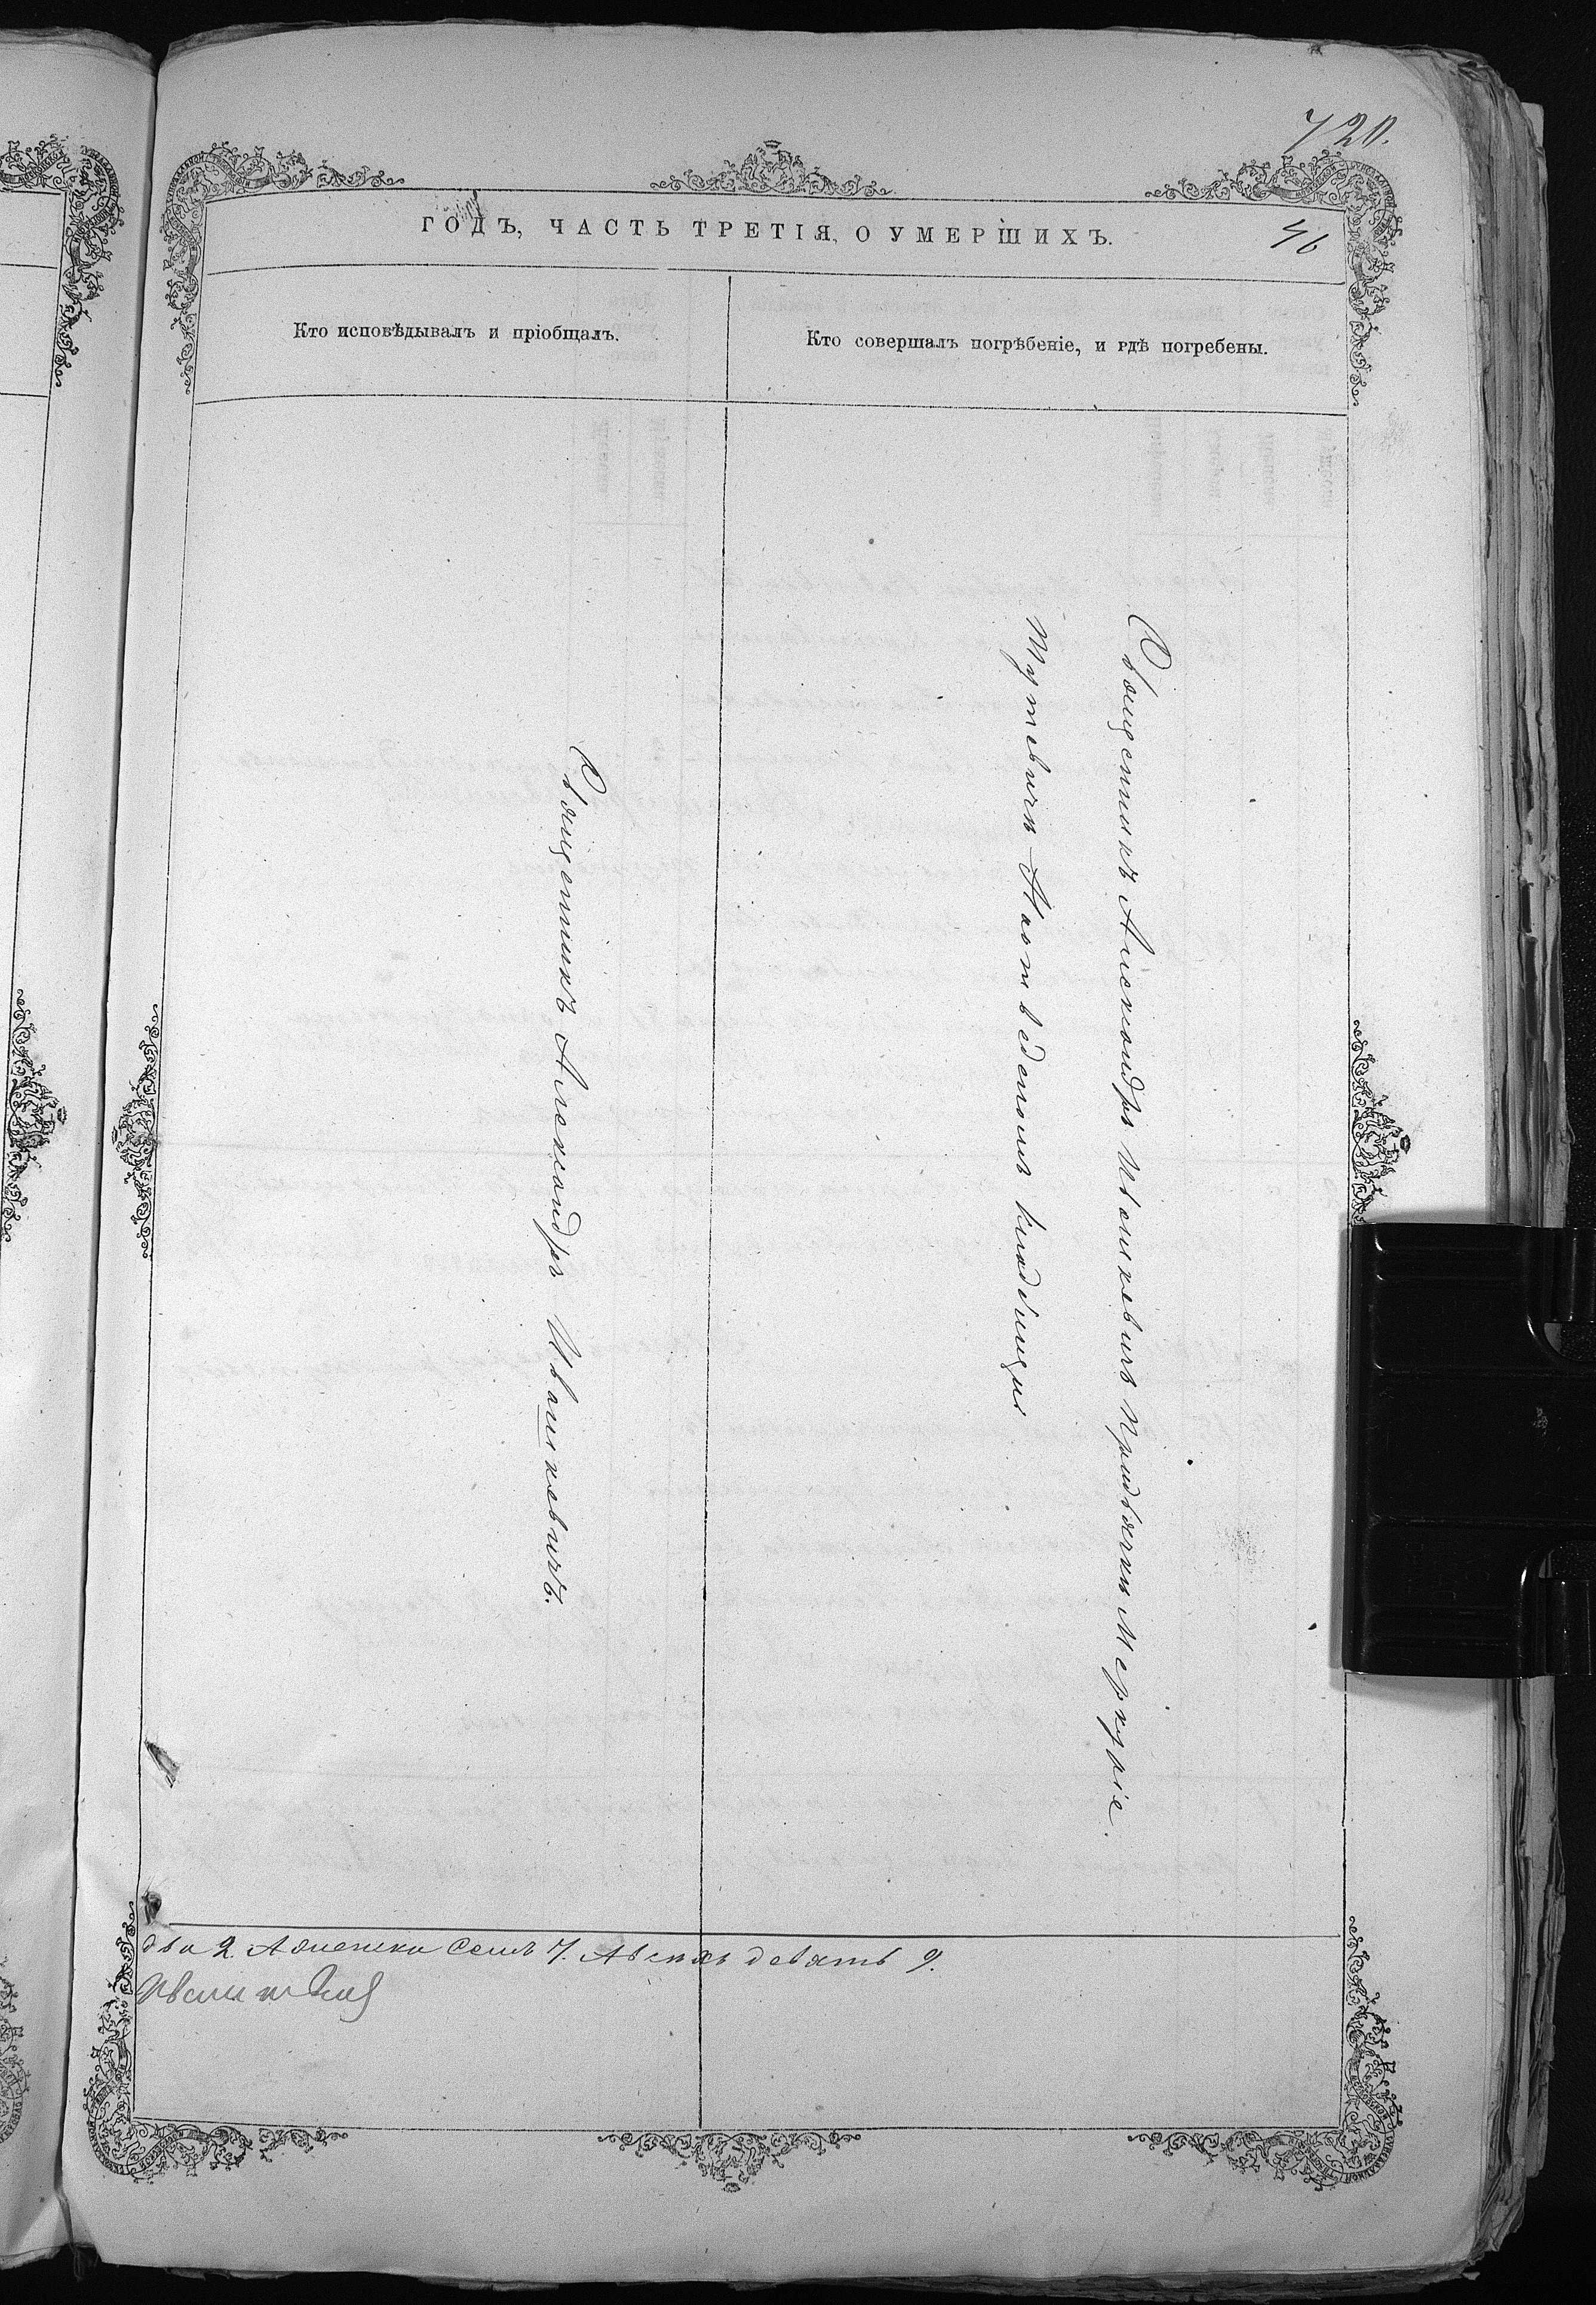 720.
ГОДЪ, ЧАСТЬ ТРЕТІЯ, О УМЕРШИХЪ.
46
Кто исповѣдывалъ и пріобщалъ.
Кто совершалъ погрѣбеніе, и гдѣ погребены.
Священникъ Александръ Ивашкевичъ.
Священникъ Александръ Ивашкевичъ Меркуріе
на отведеномъ кладбищѣ
два 2. А женска семь 7. А всѣхъ девять 9.